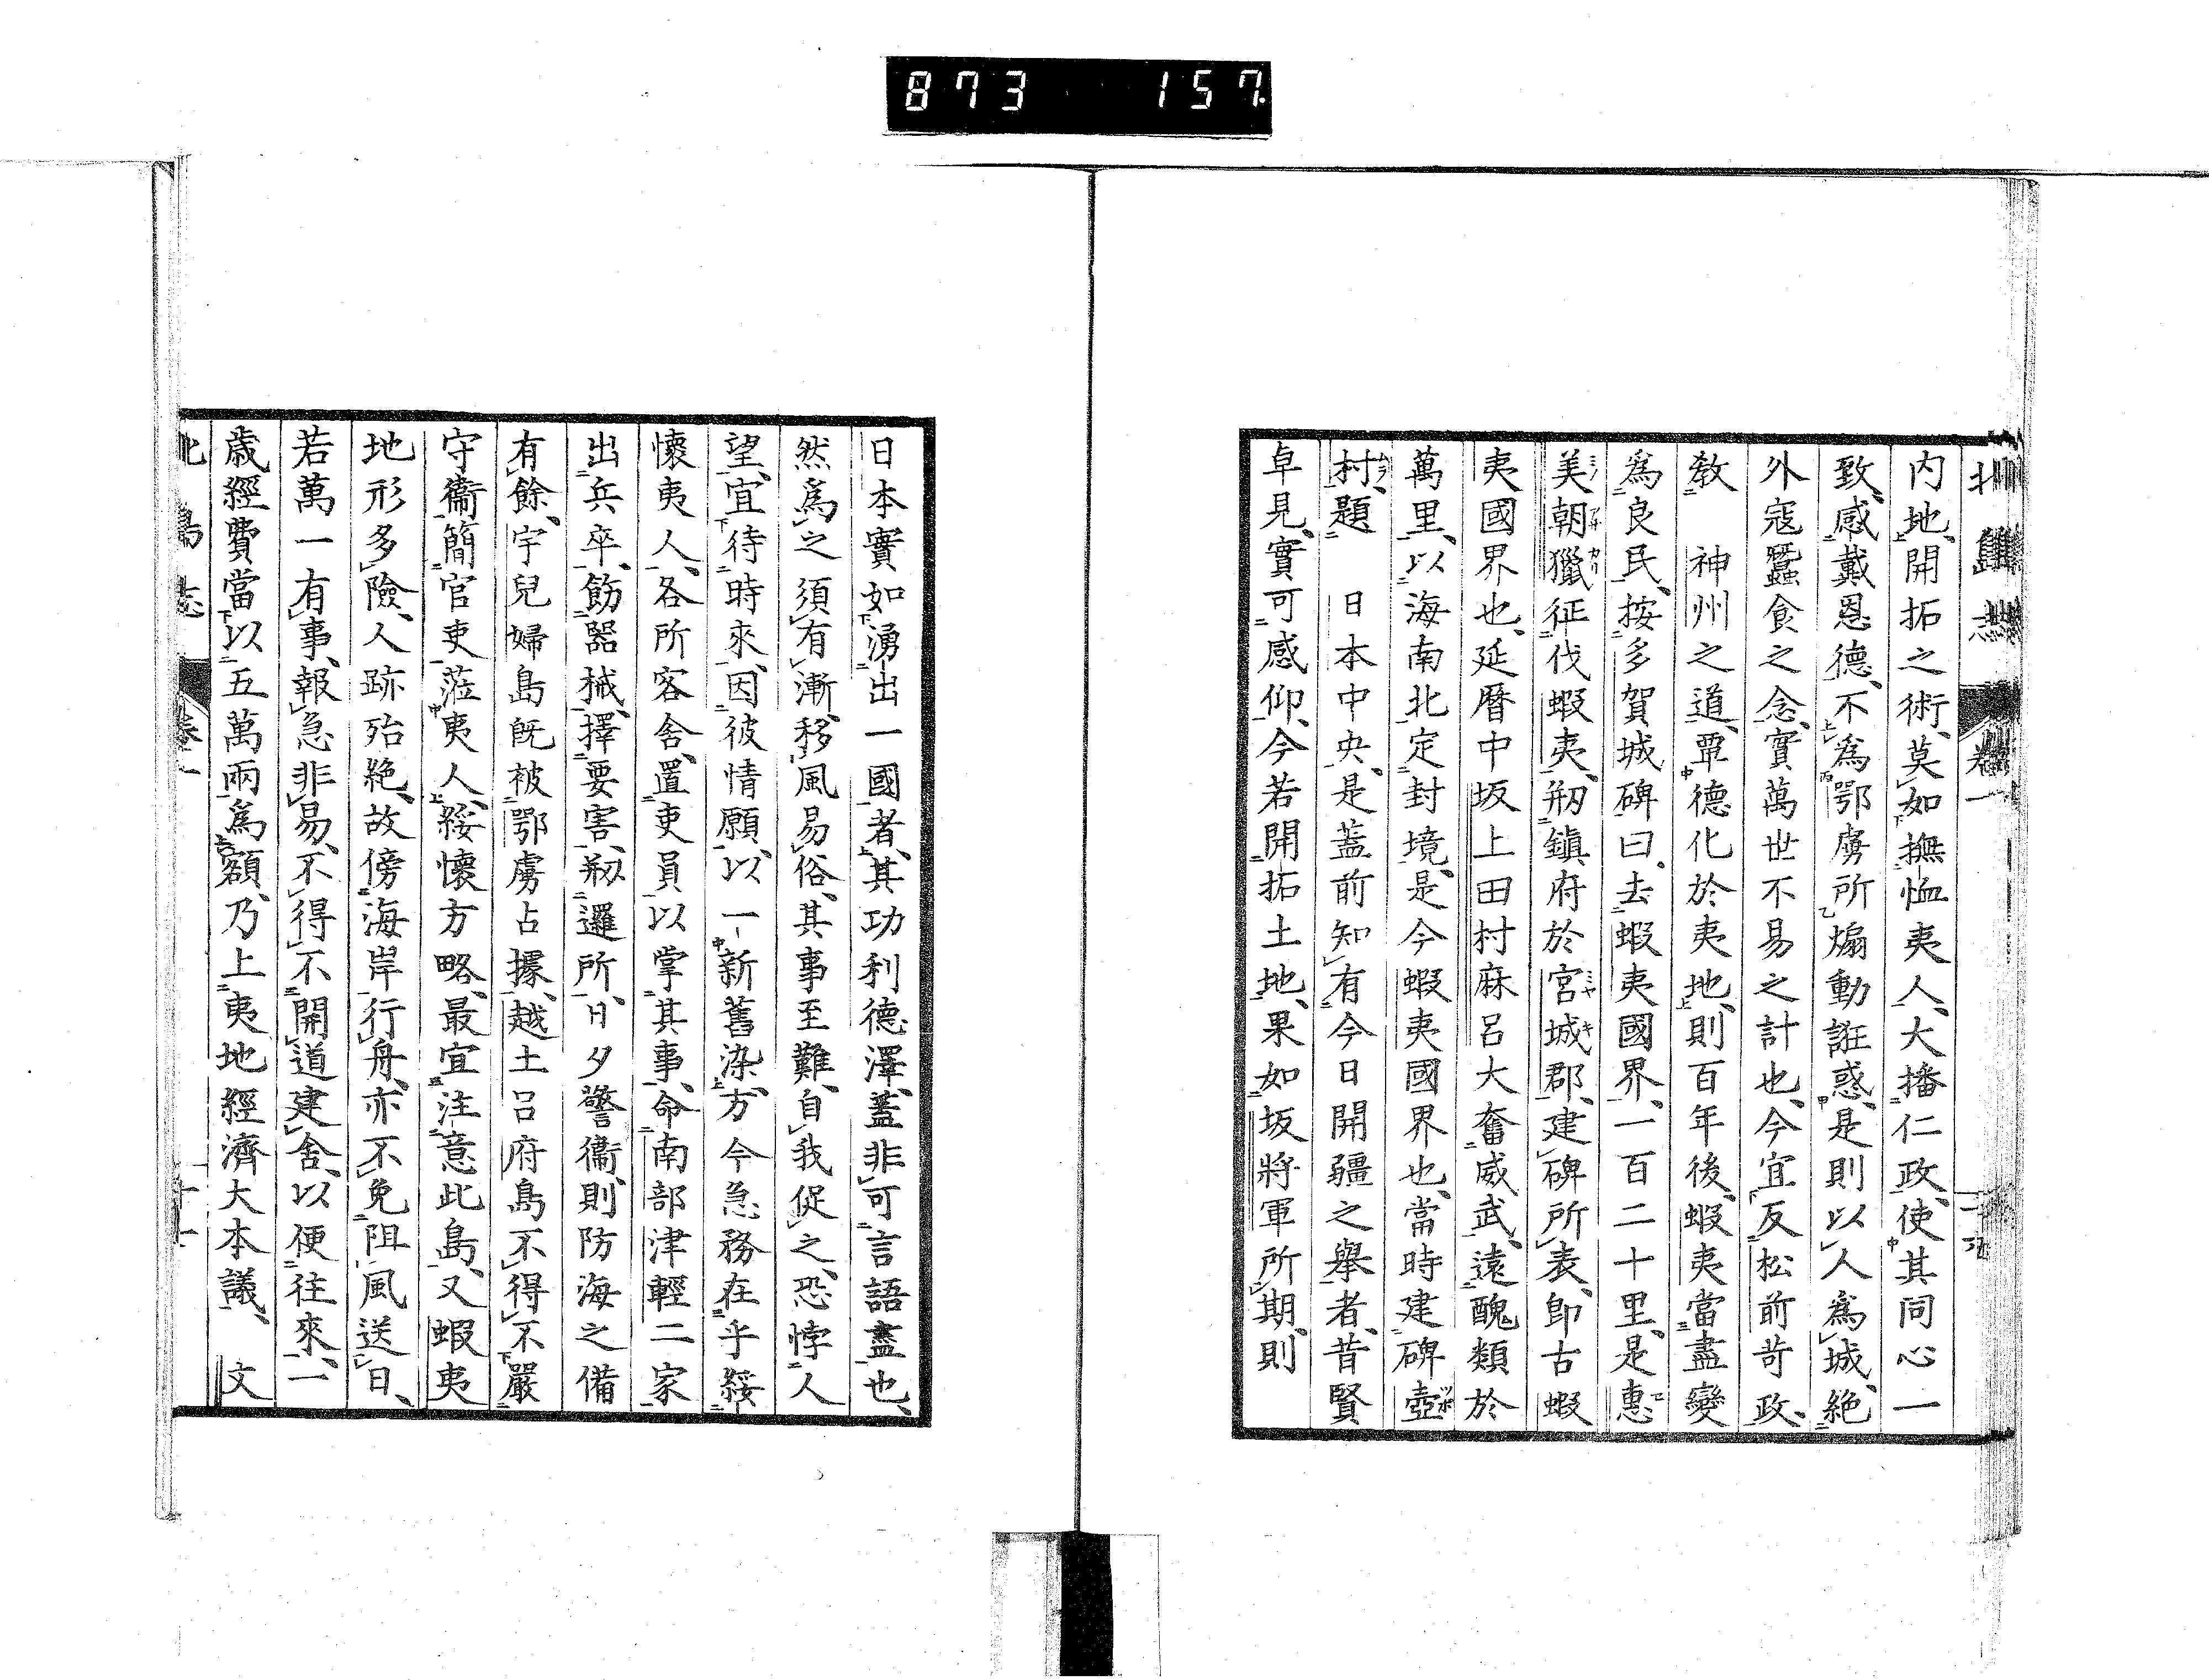 873 157
北島志 卷一
内地、開拓之術、莫如撫恤夷人、大播仁政、使其同心一
致、感戴恩德、不爲鄂虜所煽動誑惑、是則以人爲城、絶
外寇蠶食之念、實萬世不易之計也、今宜反松前苛政、
敎 神州之道、覃德化於夷地、則百年後、蝦夷當盡變
爲良民、按多賀城碑曰、去蝦夷國界、一百二十里、是惠
美朝獵征伐蝦夷、刱鎭府於宮城郡、建碑所表、卽古蝦
夷國界也、延曆中坂上田村麻呂大奮威武、遠醜類於
萬里、以海南北定封境、是今蝦夷國界也、當時建碑壺
村、題 日本中央、是蓋前知有今日開疆之擧者、昔賢
卓見、實可感仰、今若開拓土地、果如坂將軍所期、則
日本實如湧出一國者、其功利德澤、蓋非可言語盡也、
然爲之須有漸、移風易俗、其事至難、自我促之、恐悖人
望、宜待時來、因彼情願、以一新舊染、方今急務在乎綏
懷夷人、各所客舍、置吏員以掌其事、命南部津輕二家
出兵卒、飭器械、擇要害、刱邏所、日夕警衞、則防海之備
有餘、宇兒婦島旣被鄂虜占據、越土呂府島不得不嚴
守衞、簡官吏莅夷人、綏懷方略、最宜注意此島、又蝦夷
地形多險、人跡殆絶、故傍海岸行舟、亦不免阻風送日、
若萬一有事、報急非易、不得不開道建舍、以便往來、一
歲經費當以五萬兩爲額、乃上夷地經濟大本議、 文
北島志 卷一 十一